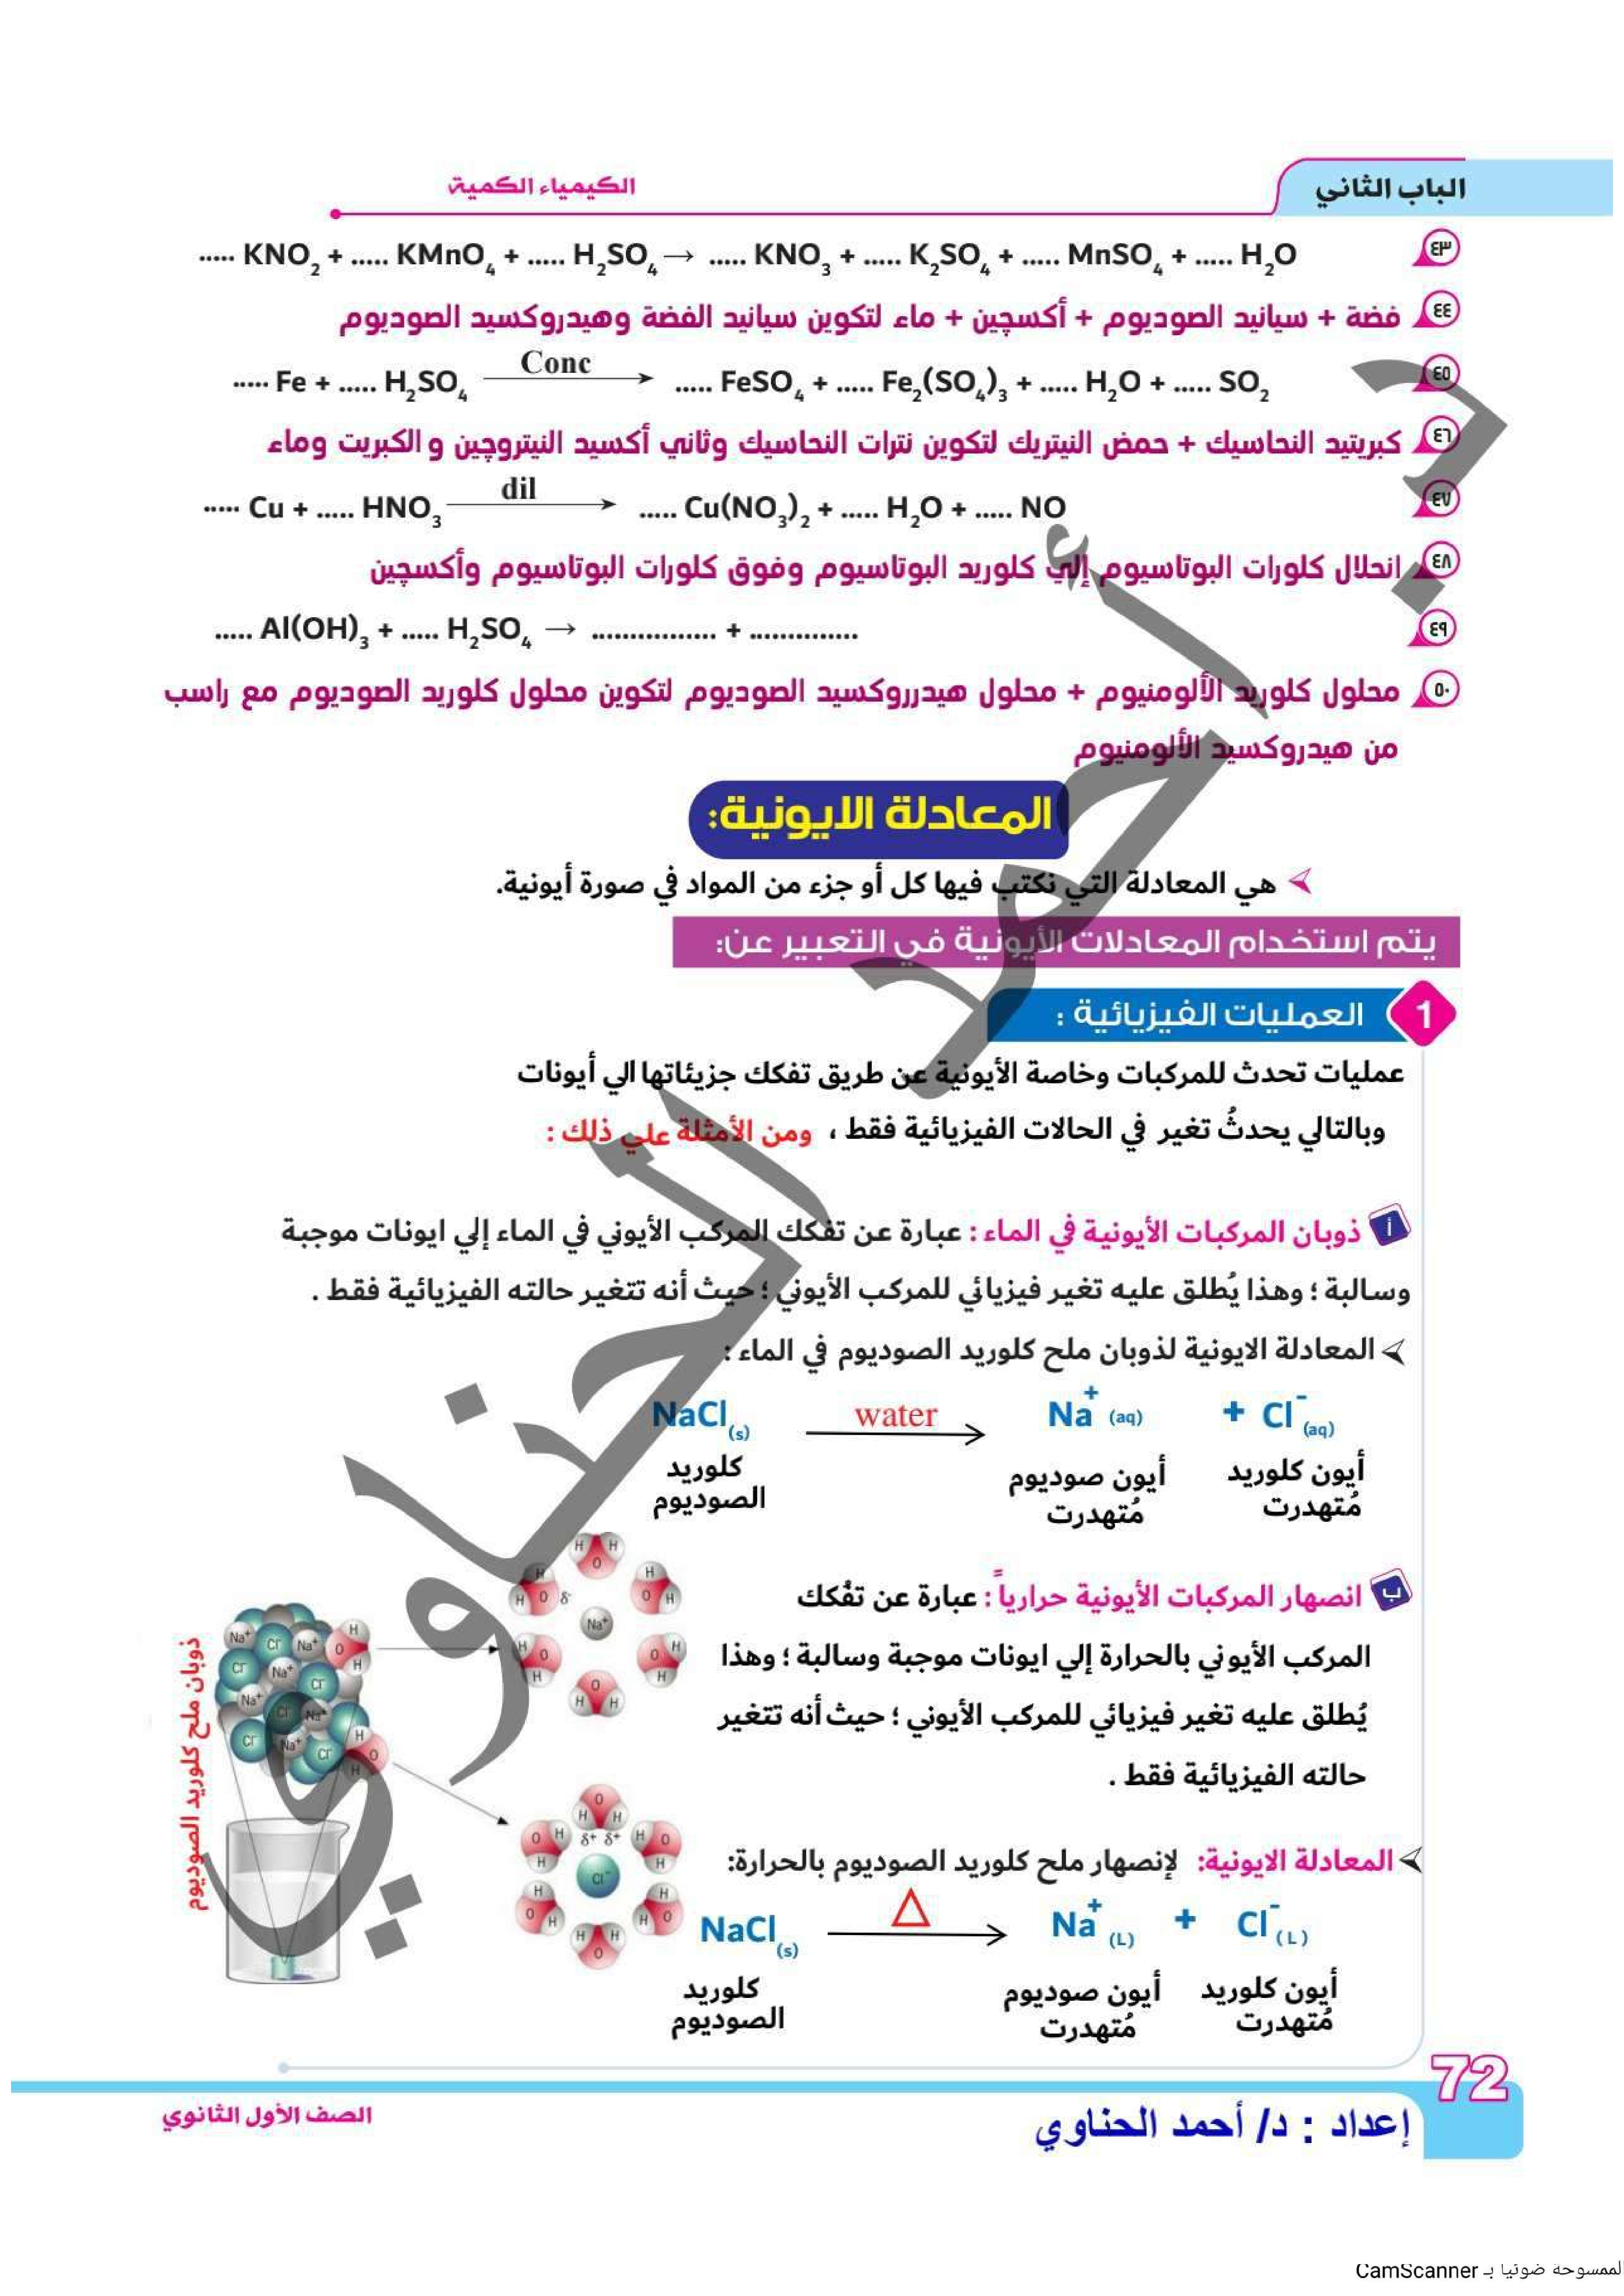 الباب الثاني
الكيمياء الكمية
٤٣ ..... KNO₂ + ..... KMnO₄ + ..... H₂SO₄ → ..... KNO₃ + ..... K₂SO₄ + ..... MnSO₄ + ..... H₂O
٤٤ فضة + سيانيد الصوديوم + أكسچين + ماء لتكوين سيانيد الفضة وهيدروكسيد الصوديوم
Conc
٤٥ ..... Fe + ..... H₂SO₄ → ..... FeSO₄ + ..... Fe₂(SO₄)₃ + ..... H₂O + ..... SO₂
٤٦ كبريتيد النحاسيك + حمض النيتريك لتكوين نترات النحاسيك وثاني أكسيد النيتروچين و الكبريت وماء
dil
٤٧ ..... Cu + ..... HNO₃ → ..... Cu(NO₃)₂ + ..... H₂O + ..... NO
٤٨ انحلال كلورات البوتاسيوم إلي كلوريد البوتاسيوم وفوق كلورات البوتاسيوم وأكسچين
٤٩ ..... Al(OH)₃ + ..... H₂SO₄ → ................ + ..............
٥٠ محلول كلوريد الألومنيوم + محلول هيدرروكسيد الصوديوم لتكوين محلول كلوريد الصوديوم مع راسب
من هيدروكسيد الألومنيوم
المعادلة الايونية:
هي المعادلة التي نكتب فيها كل أو جزء من المواد في صورة أيونية.
يتم استخدام المعادلات الأيونية في التعبير عن:
1 العمليات الفيزيائية :
عمليات تحدث للمركبات وخاصة الأيونية عن طريق تفكك جزيئاتها الي أيونات
وبالتالي يحدثُ تغير في الحالات الفيزيائية فقط ، ومن الأمثلة علي ذلك :
أ ذوبان المركبات الأيونية في الماء : عبارة عن تفكك المركب الأيوني في الماء إلي ايونات موجبة
وسالبة ؛ وهذا يُطلق عليه تغير فيزيائي للمركب الأيوني ؛ حيث أنه تتغير حالته الفيزيائية فقط .
المعادلة الايونية لذوبان ملح كلوريد الصوديوم في الماء :
NaCl(s) water → Na⁺(aq) + Cl⁻(aq)
كلوريد الصوديوم
أيون صوديوم مُتهدرت
أيون كلوريد مُتهدرت
ب انصهار المركبات الأيونية حرارياً : عبارة عن تفُكك
المركب الأيوني بالحرارة إلي ايونات موجبة وسالبة ؛ وهذا
يُطلق عليه تغير فيزيائي للمركب الأيوني ؛ حيث أنه تتغير
حالته الفيزيائية فقط .
ذوبان ملح كلوريد الصوديوم
المعادلة الايونية: لإنصهار ملح كلوريد الصوديوم بالحرارة:
NaCl(s) △ → Na⁺(L) + Cl⁻(L)
كلوريد الصوديوم
أيون صوديوم مُتهدرت
أيون كلوريد مُتهدرت
72
إعداد : د/ أحمد الحناوي
الصف الأول الثانوي
د. أحمد الحناوي
لممسوحة ضوئيا بـ CamScanner